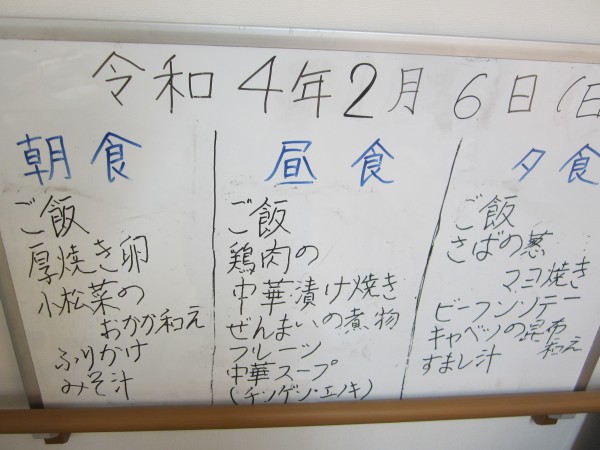 令和4年2月6日(日
朝食
ご飯
厚焼き卵
小松菜の
おかか和え
ふりかけ
みそ汁
昼食
ご飯
鶏肉の
中華漬け焼き
ぜんまいの煮物
フルーツ
中華スープ
(チンゲン・エノキ)
夕食
ご飯
さばの葱
マヨ焼き
ビーフンソテー
キャベツの昆布
和え
すまし汁